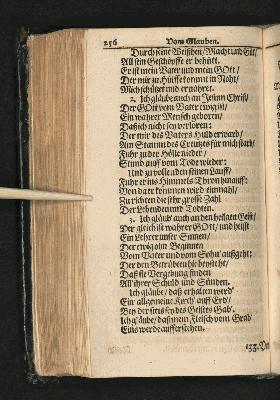 256 Vom Glauben.
Durch seine Weißheit/ Macht und
All sein Geschöpffe er behüt.
Er ist mein Vater und mein GOtt/
Der mir zu Hülffe kommt in Noht/
Mich schützet und ernähret.
2. Ich gläube auch an JEsum Christ/
Der GOtt vom Vater ewig ist/
Ein wahrer Mensch geboren/
Daß ich nicht sey verloren:
Der mir des Vaters Huld erwarb/
Am Stamm des Creutzes für mich starb/
Fuhr zu der Hölle nieder/
Stund auff vom Tode wieder:
Und zu vollenden seinen Lauff/
Fuhr er ins Himmels Thron hinauff:
Von da er kommen wird einmahl/
Zu richten die sehr grosse Zahl
Der Lebenden und Todten.
3. Ich gläub' auch an den heilgen Geist/
Der gleich ist wahrer GOtt/ und heist
Ein Lehrer unser Sinnen/
Der ewig ohn Beginnen
Vom Vater und vom Sohn' außgeht:
Der den Betrübten beysteht/
Daß sie Vergebung finden
All' ihrer Schuld und Sünden.
Ich gläube/ daß erhalten werd'
Ein' allgemeine Kirch' auff Erd/
Bey der stets sey des Geistes Gab'.
Ich gläube/ daß mein Fleisch vom Grab'
Eins werde aufferstehen.
133.